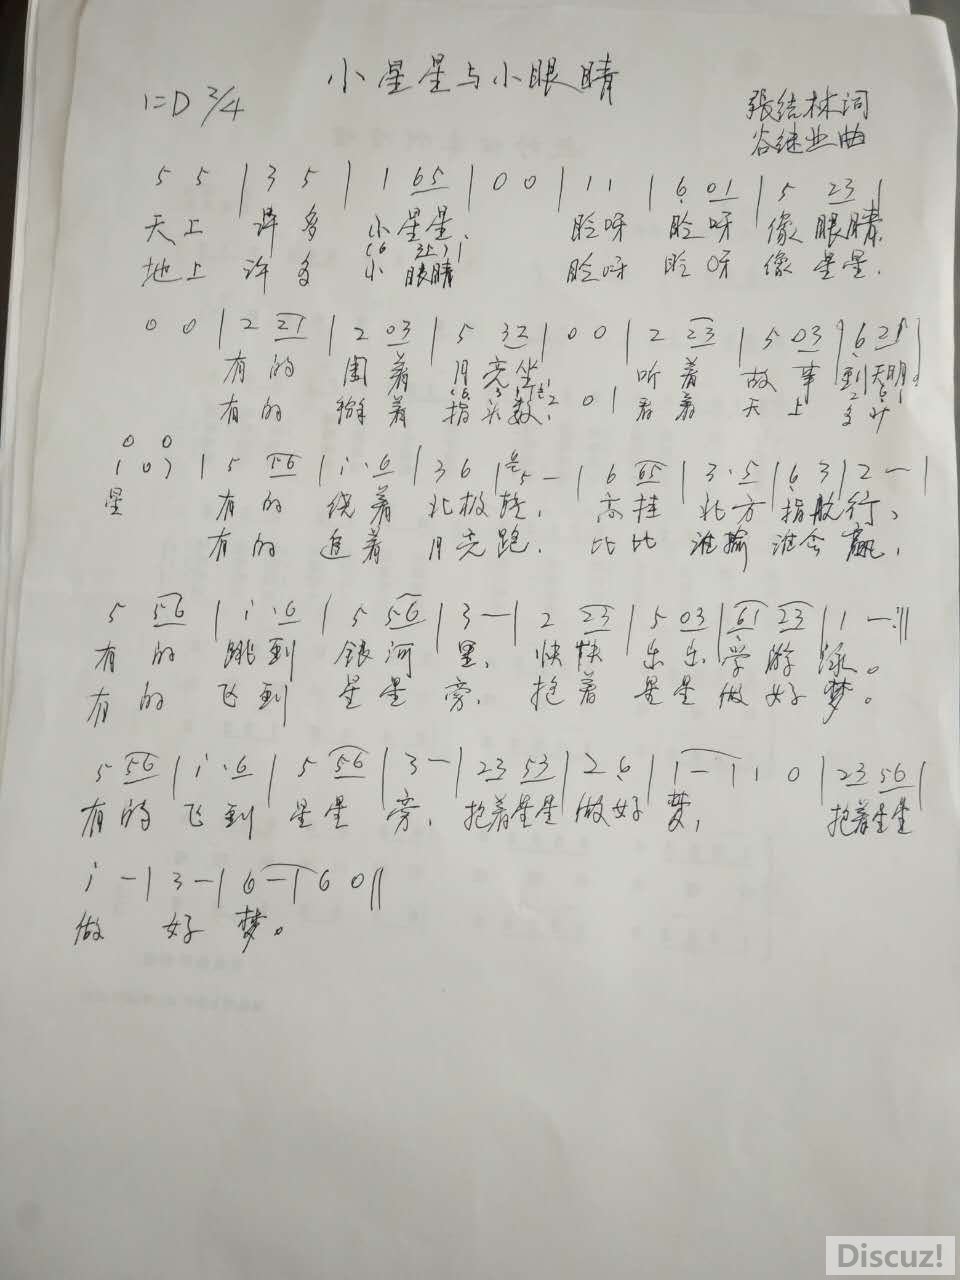 小星星与小眼睛
1=D 2/4
張结林词
谷继业曲
5 5 | 3 5 | 1 65 | 0 0 | 1 1 | 6 01 | 5 23 |
天上 许多 小星星, 眨呀 眨呀 像眼睛.
地上 许多 小眼睛 眨呀 眨呀 像星星.
0 0 | 2 21 | 2 03 | 5 32 | 0 0 | 2 23 | 5 03 | 6 21 |
有的 围着 月亮坐 听着 故事 到天明.
有的 掰着 指头数, 0 1 看着 天上 多少
0 0
1 0) | 5 56 | i·6 | 3 6 | 5 — | 6 65 | 3·5 | 6 3 | 2 — |
星 有的 绕着 北极转, 高挂 北方 指航行,
有的 追着 月亮跑. 比比 谁输 谁会赢,
5 56 | i·6 | 5 56 | 3 — | 2 23 | 5 03 | 61 23 | 1 — :||
有的 跳到 銀河里, 快快乐乐 学游泳。
有的 飞到 星星旁, 抱着 星星 做好梦。
5 56 | i·6 | 5 56 | 3 — | 23 53 | 2 6 | 1 — | 1 0 | 23 56 |
有的 飞到 星星旁, 抱着星星 做好梦, 抱着星星
i — | 3 — | 6 — | 6 0 ||
做 好 梦。
Discuz!